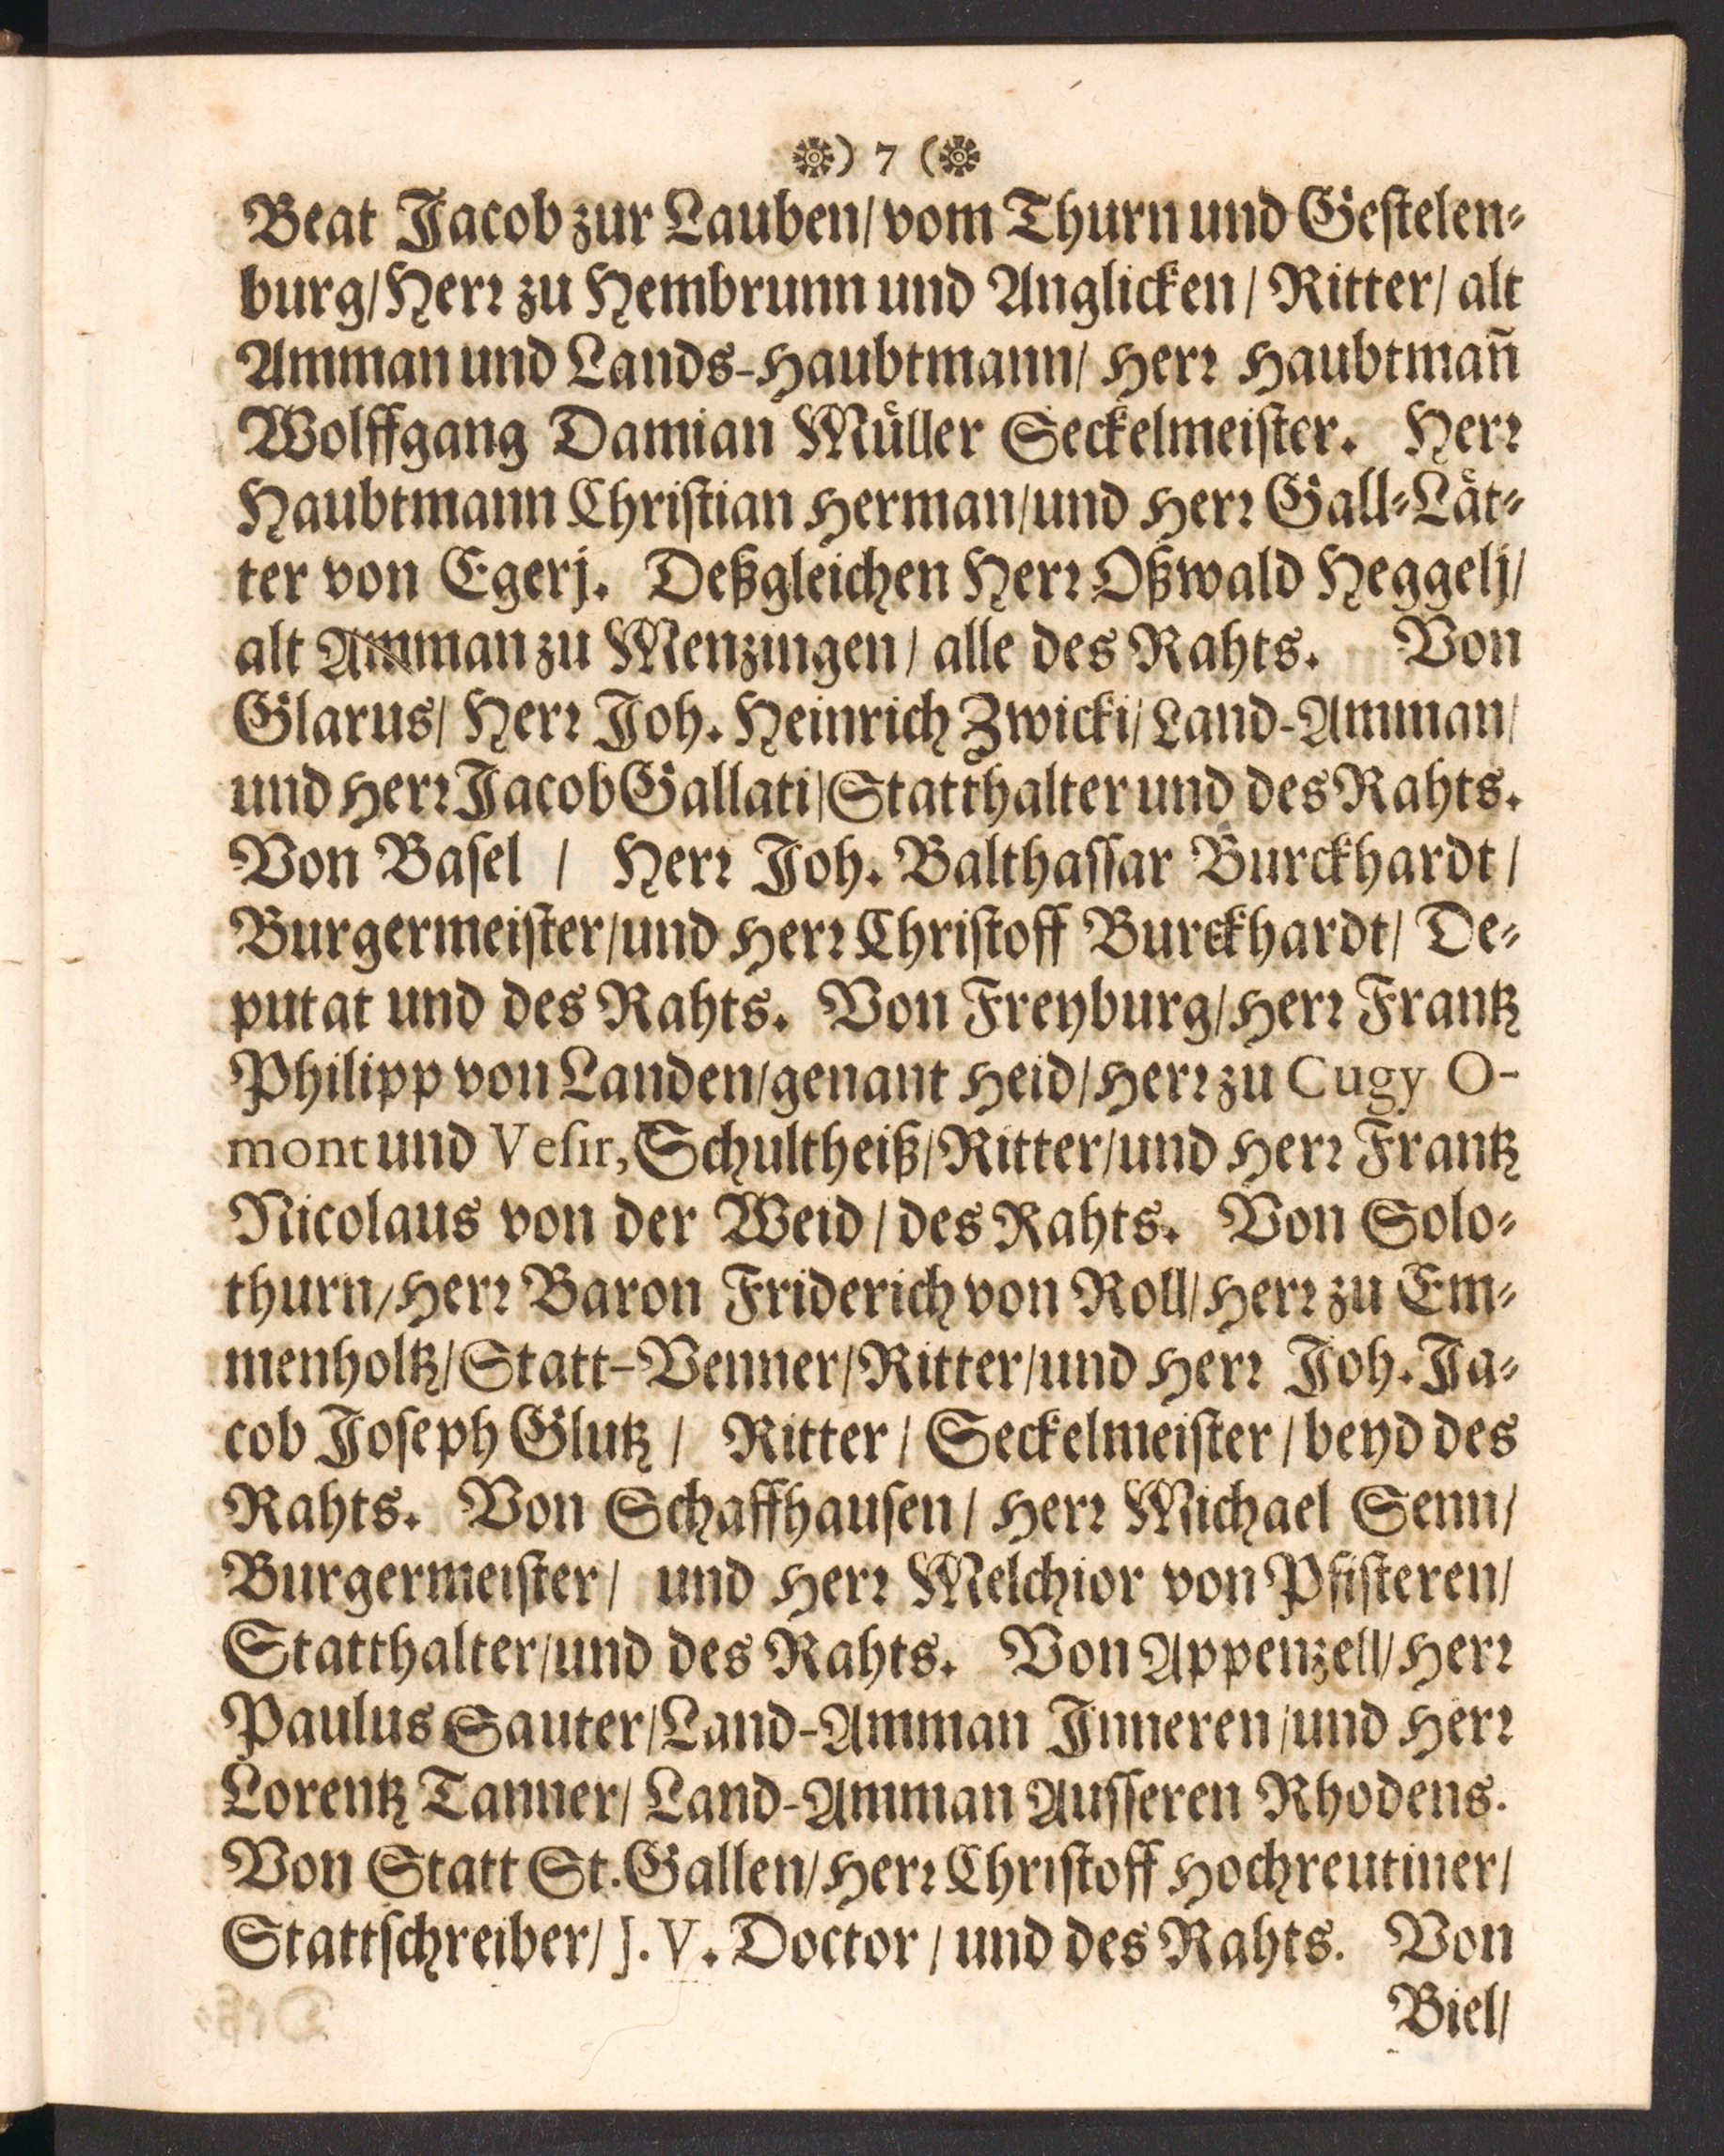 ❁) 7 (❁
Beat Jacob zur Lauben/ vom Thurn und Gestelen⸗
burg/ Herr zu Hembrunn und Anglicken/ Ritter/ alt
Amman und Lands-Haubtmann/ Herr Haubtmañ
Wolffgang Damian Müller Seckelmeister. Herr
Haubtmann Christian Herman/ und Herr Gall⸗Lät⸗
ter von Egerj. Deßgleichen Herr Oßwald Heggelj/
alt Amman zu Menzingen/ alle des Rahts. Von
Glarus/ Herr Joh. Heinrich Zwicki/ Land-Amman/
und Herr Jacob Gallati/ Statthalter und des Rahts.
Von Basel / Herr Joh. Balthassar Burckhardt/
Burgermeister/ und Herr Christoff Burckhardt/ De⸗
putat und des Rahts. Von Freyburg/ Herr Frantz
Philipp von Landen/ genant Heid/ Herr zu Cugy O-
mont und Vesir, Schultheiß/ Ritter/ und Herr Frantz
Nicolaus von der Weid/ des Rahts. Von Solo⸗
thurn/ Herr Baron Friderich von Roll/ Herr zu Em⸗
menholtz/ Statt-Venner/ Ritter/ und Herr Joh. Ja⸗
cob Joseph Glutz / Ritter/ Seckelmeister/ beyd des
Rahts. Von Schaffhausen/ Herr Michael Senn/
Burgermeister/ und Herr Melchior von Pfisteren/
Statthalter/ und des Rahts. Von Appenzell/ Herr
Paulus Sauter/ Land-Amman Inneren/ und Herr
Lorentz Tanner/ Land-Amman Ausseren Rhodens.
Von Statt St. Gallen/ Herr Christoff Hochreutiner/
Stattschreiber/ J. V. Doctor/ und des Rahts. Von
Biel/